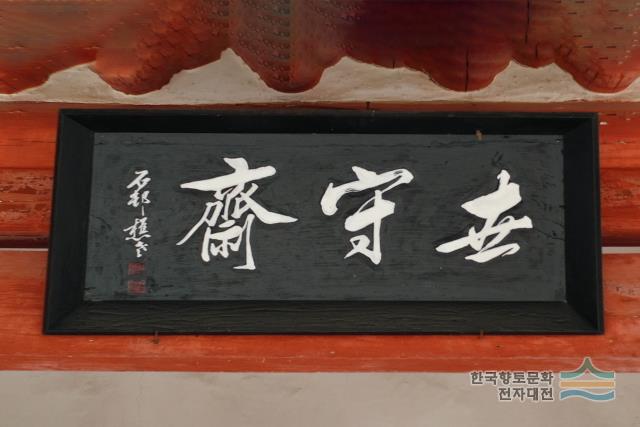 世守齋
한국향토문화
전자대전